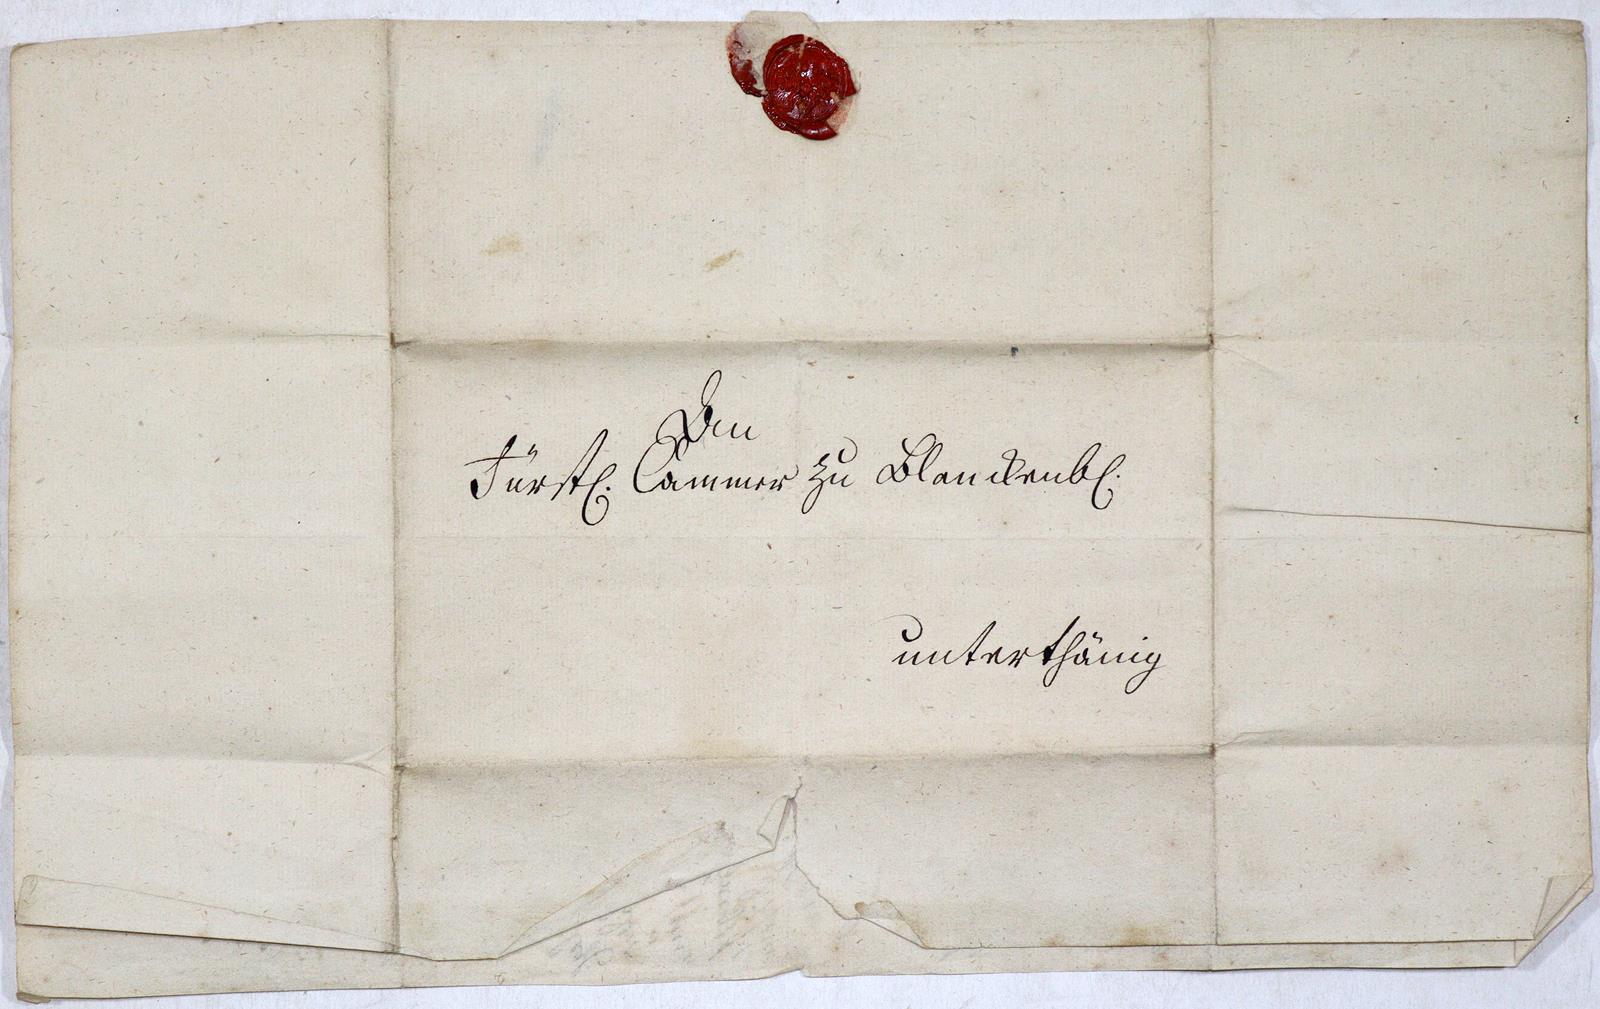 Den
Fürstl. Cammer zu Blanckenb.
unterthänig